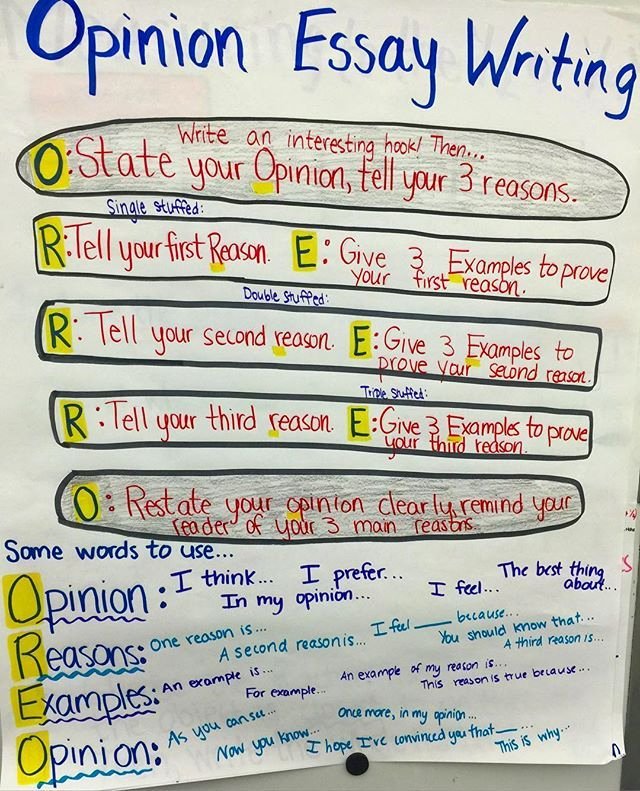 Opinion Essay Writing
Write an interesting hook! Then...
O: State your Opinion, tell your 3 reasons.
Single Stuffed:
R: Tell your first Reason. E: Give 3 Examples to prove
your first reason.
Double Stuffed:
R: Tell your second reason. E: Give 3 Examples to
prove your second reason.
Triple Stuffed:
R: Tell your third reason. E: Give 3 Examples to prove
your third reason.
O: Restate your opinion clearly, remind your
reader of your 3 main reasons.
Some words to use...
Opinion: I think... I prefer... I feel... The best thing about...
In my opinion...
Reasons: One reason is... I feel ___ because... You should know that...
A second reason is... A third reason is...
Examples: An example is... An example of my reason is...
For example... This reason is true because...
Opinion: As you can see... Once more, in my opinion...
Now you know... I hope I've convinced you that ___... This is why...